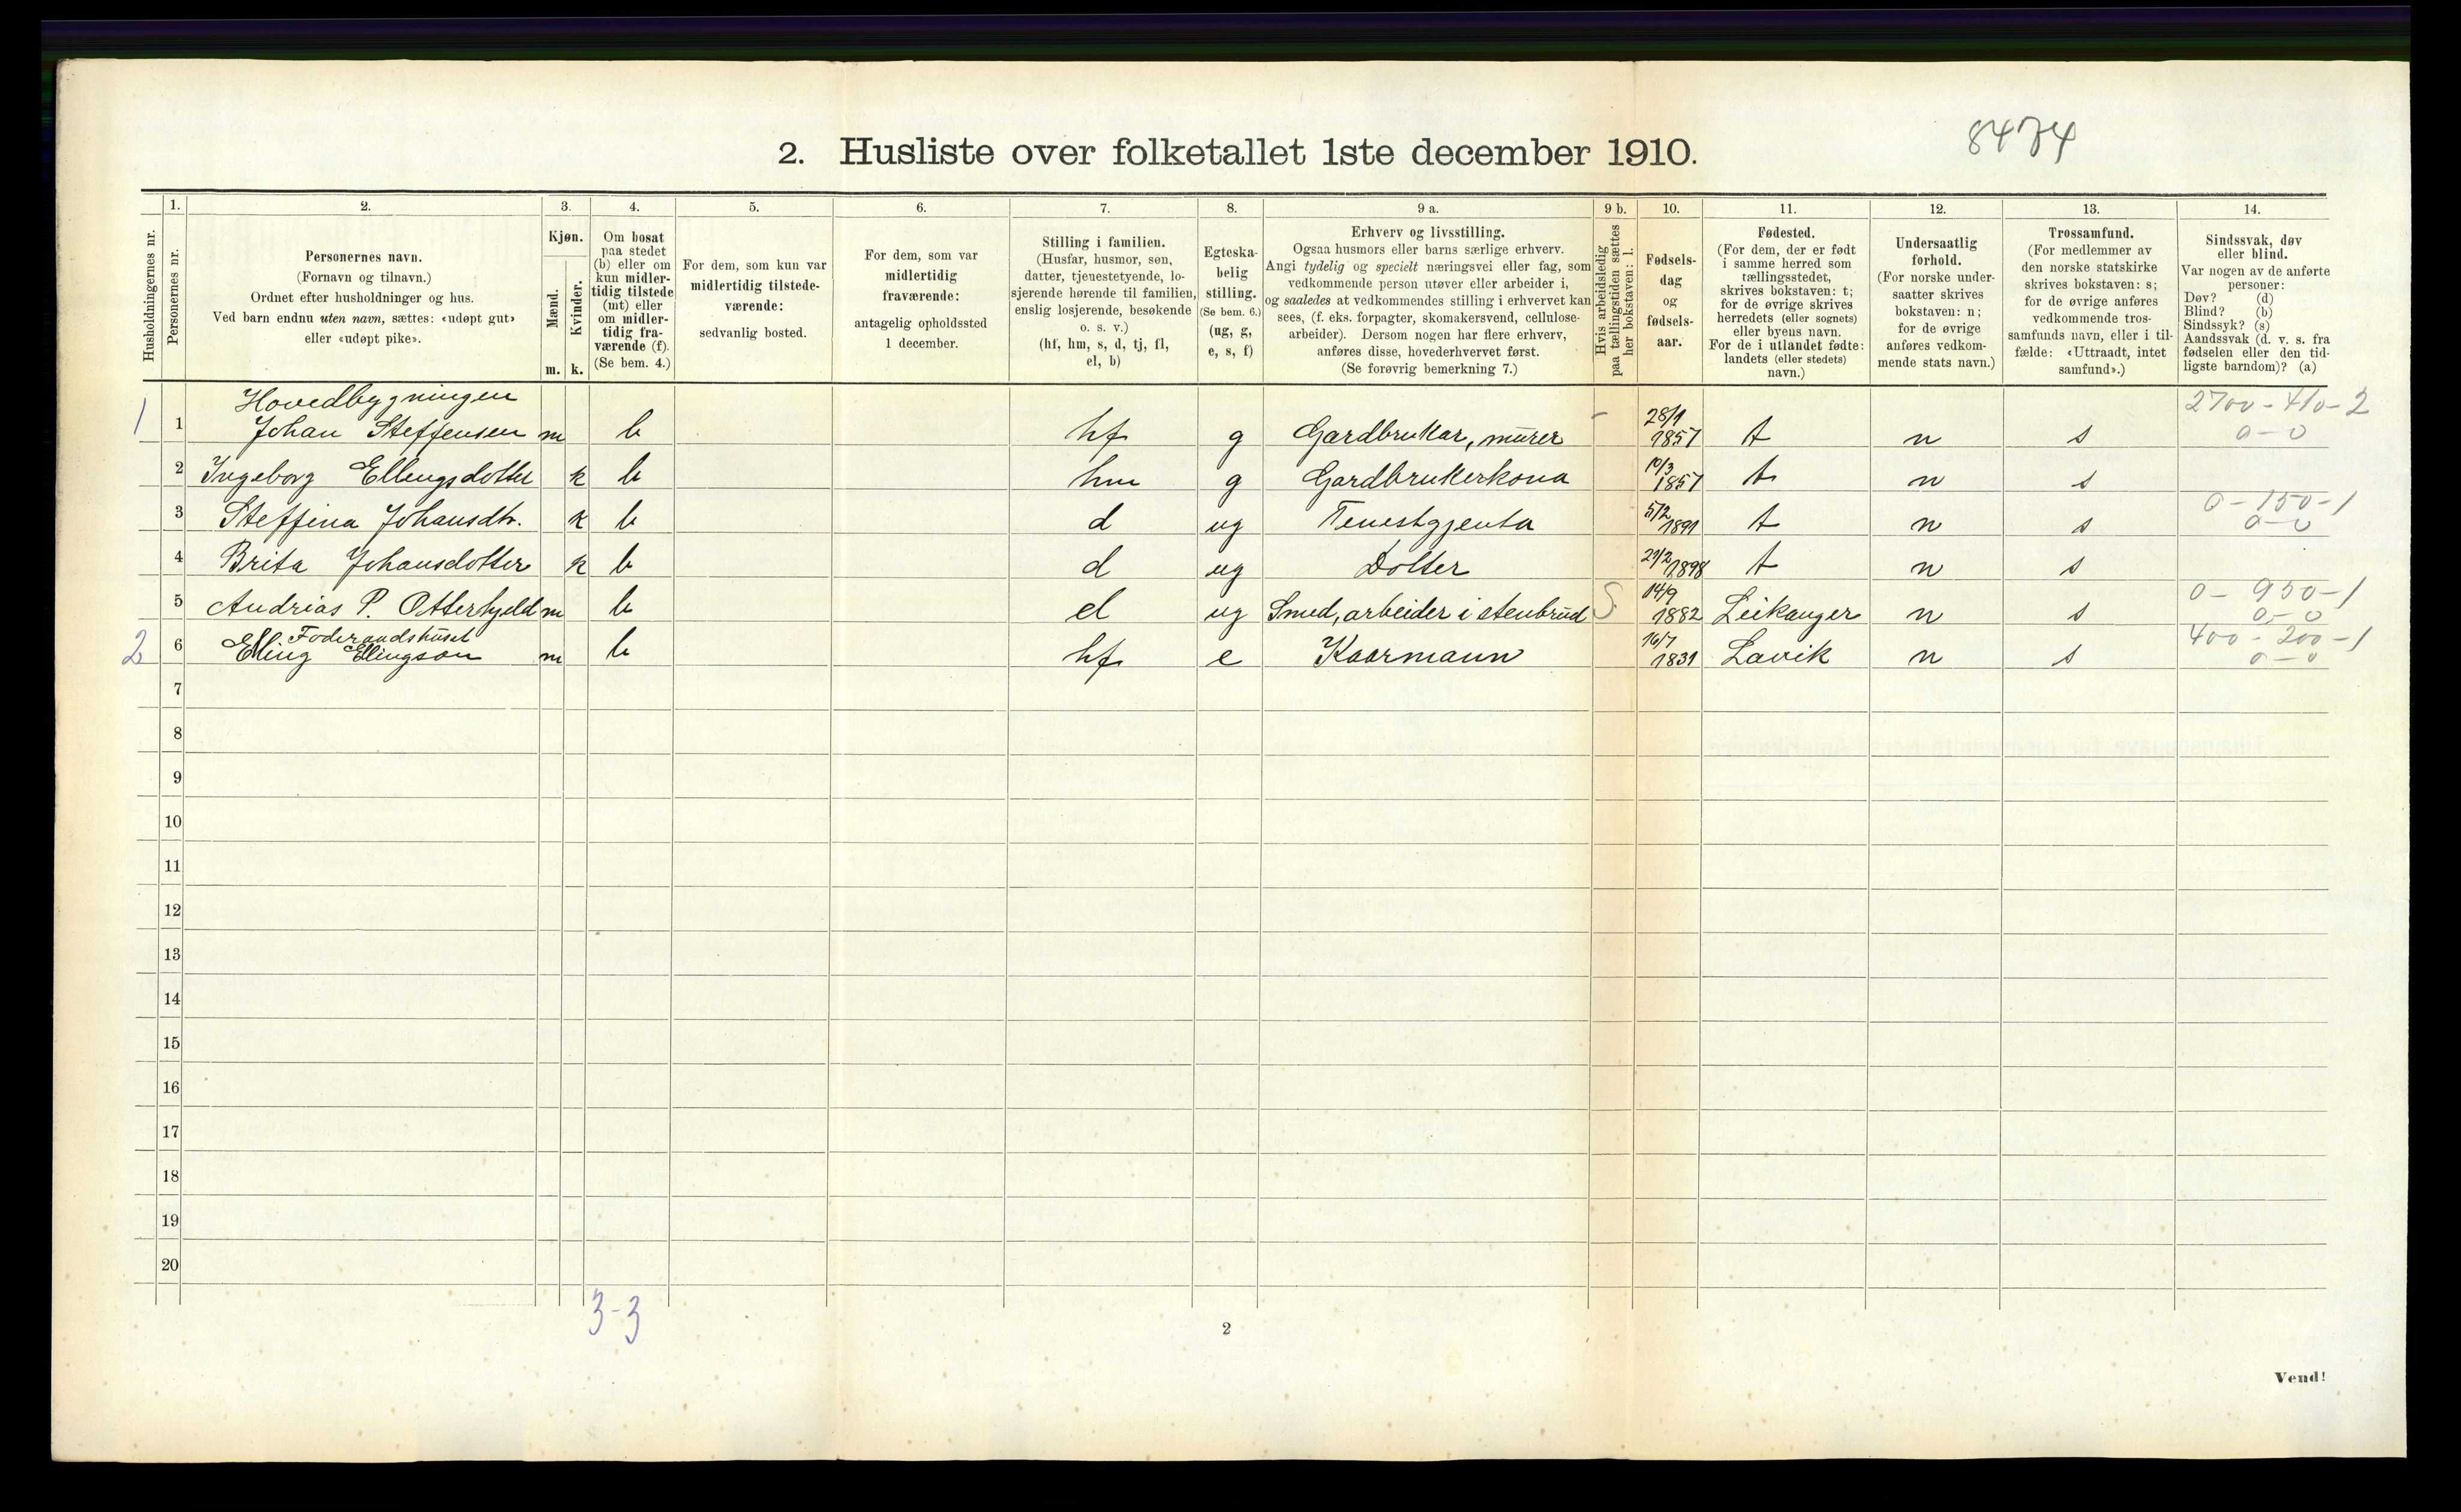 8474
2. Husliste over folketallet 1ste december 1910.
Husholdningernes nr.
1.
Personernes nr.
2.
Personernes navn.
(Fornavn og tilnavn.)
Ordnet efter husholdninger og hus.
Ved barn endnu uten navn, sættes: «udøpt gut»
eller «udøpt pike».
3.
Kjøn.
Mænd.
Kvinder.
m. k.
4.
Om bosat
paa stedet
(b) eller om
kun midler-
tidig tilstede
(mt) eller
om midler-
tidig fra-
værende (f).
(Se bem. 4.)
5.
For dem, som kun var
midlertidig tilstede-
værende:
sedvanlig bosted.
6.
For dem, som var
midlertidig
fraværende:
antagelig opholdssted
1 december.
7.
Stilling i familien.
(Husfar, husmor, søn,
datter, tjenestetyende, lo-
sjerende hørende til familien,
enslig losjerende, besøkende
o. s. v.)
(hf, hm, s, d, tj, fl,
el, b)
8.
Egteska-
belig
stilling.
(Se bem. 6.)
(ug, g,
e, s, f)
9 a.
Erhverv og livsstilling.
Ogsaa husmors eller barns særlige erhverv.
Angi tydelig og specielt næringsvei eller fag, som
vedkommende person utøver eller arbeider i,
og saaledes at vedkommendes stilling i erhvervet kan
sees, (f. eks. forpagter, skomakersvend, cellulose-
arbeider). Dersom nogen har flere erhverv,
anføres disse, hovederhvervet først.
(Se forøvrig bemerkning 7.)
9 b.
Hvis arbeidsledig
paa tællingstiden sættes
her bokstaven: l.
10.
Fødsels-
dag
og
fødsels-
aar.
11.
Fødested.
(For dem, der er født
i samme herred som
tællingsstedet,
skrives bokstaven: t;
for de øvrige skrives
herredets (eller sognets)
eller byens navn.
For de i utlandet fødte:
landets (eller stedets)
navn.)
12.
Undersaatlig
forhold.
(For norske under-
saatter skrives
bokstaven: n;
for de øvrige
anføres vedkom-
mende stats navn.)
13.
Trossamfund.
(For medlemmer av
den norske statskirke
skrives bokstaven: s;
for de øvrige anføres
vedkommende tros-
samfunds navn, eller i til-
fælde: «Uttraadt, intet
samfund».)
14.
Sindssvak, døv
eller blind.
Var nogen av de anførte
personer:
Døv? (d)
Blind? (b)
Sindssyk? (s)
Aandssvak (d. v. s. fra
fødselen eller den tid-
ligste barndom)? (a)
Hovedbygningen 2700-410-2
1 1 Johan Steffensen m b hf g Gardbrukar, murer - 28/1 1857 t n s 0-0
2 Ingeborg Ellengsdotter k b hm g Gardbrukerkona 10/3 1857 t n s
3 Steffina Johansdtr. k b d ug Tenestgjenta 5/2 1891 t n s 0-150-1 0-0
4 Brita Johansdotter k b d ug Dotter 29/2 1898 t n s
5 Andrias P. Otterhjeld m b el ug Smed, arbeider i stenbrud S 14/9 1882 Leikanger n s 0-950-1 0-0
Foderaadshuset
2 6 Elling Ellingson m b hf e Kaarmann 16/7 1831 Lavik n s 400-200-1 0-0
7
8
9
10
11
12
13
14
15
16
17
18
19
20
3-3
2
Vend!